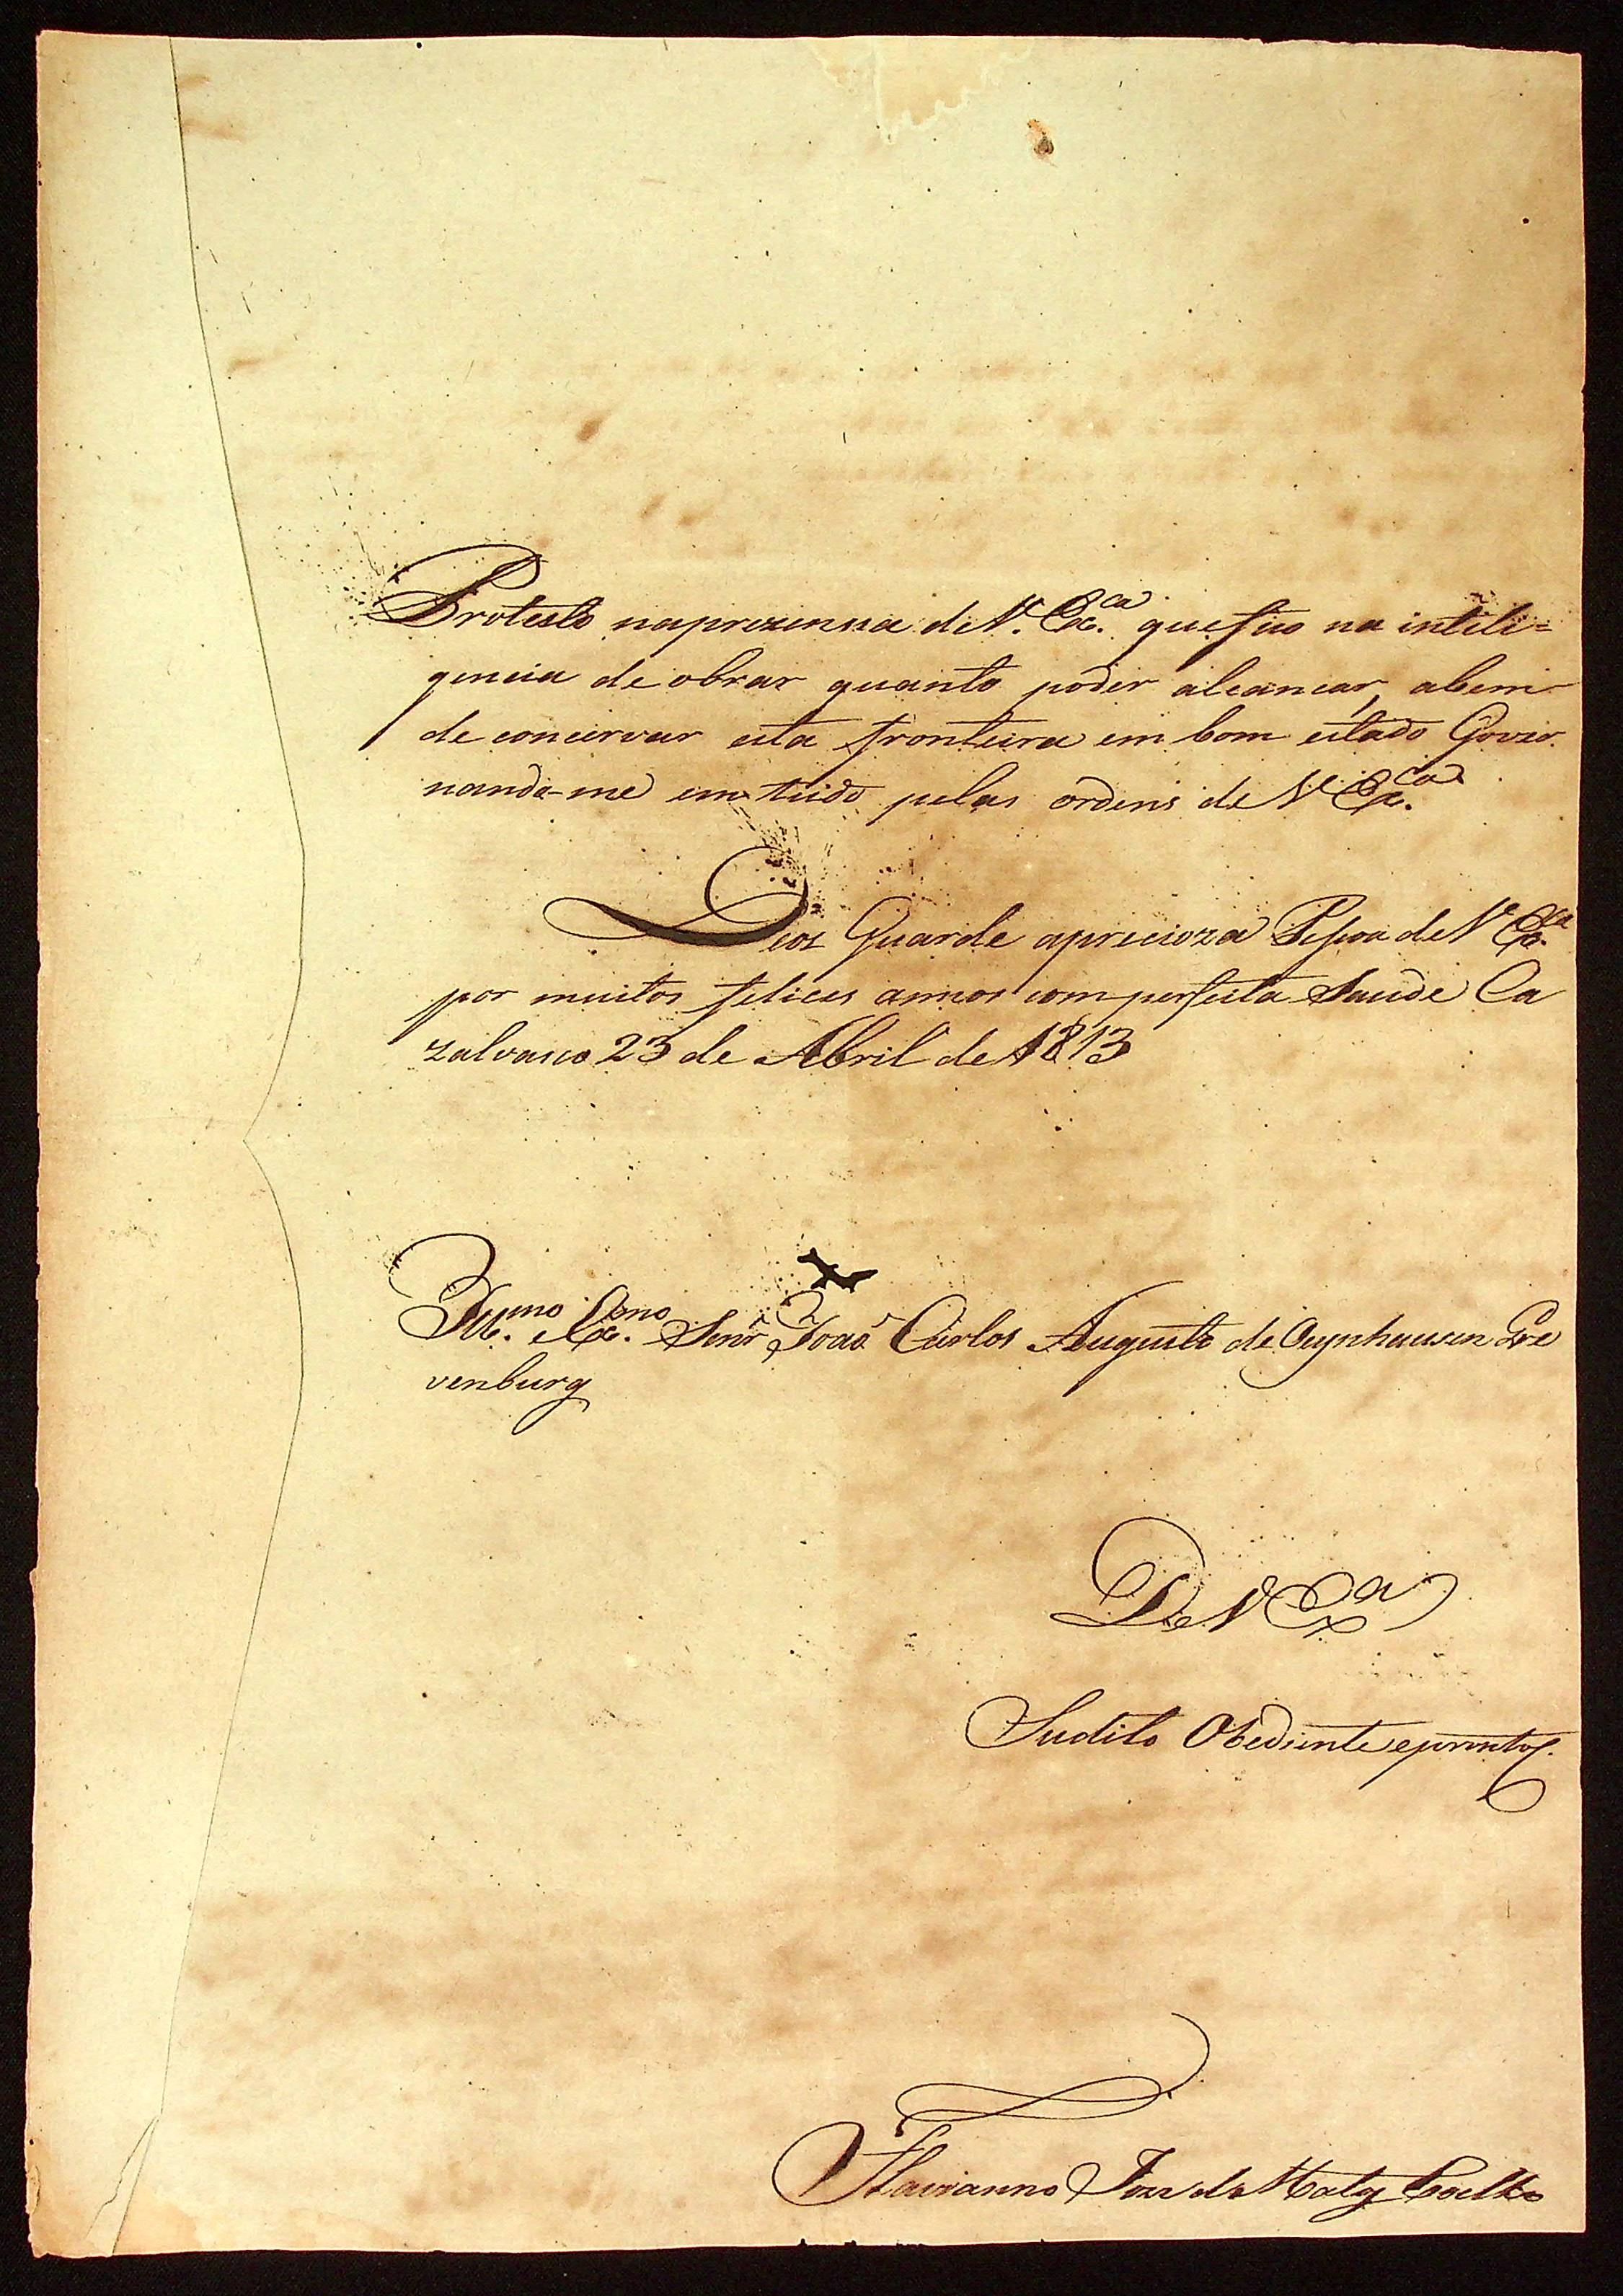 Protesto naprezensa de V. Exca. que fico na inteli=
gencia de obrar quanto poder alcancar, abem
de concervar esta fronteira em bom estado Gover.
nando-me em tudo pelas ordens de V Exca.
Deos Guarde aprecioza Pesoa de V Exca.
por muitos felices annos com perfeita Saude Ca
zalvasco 23 de Abril de 1813
Illmo. e Exmo. Senr. João Carlos Augusto de Oeynhausen Gre
venburg
De V Exa
Sudito Obediente epronto
Flavianno Joze de Mattos Coelho